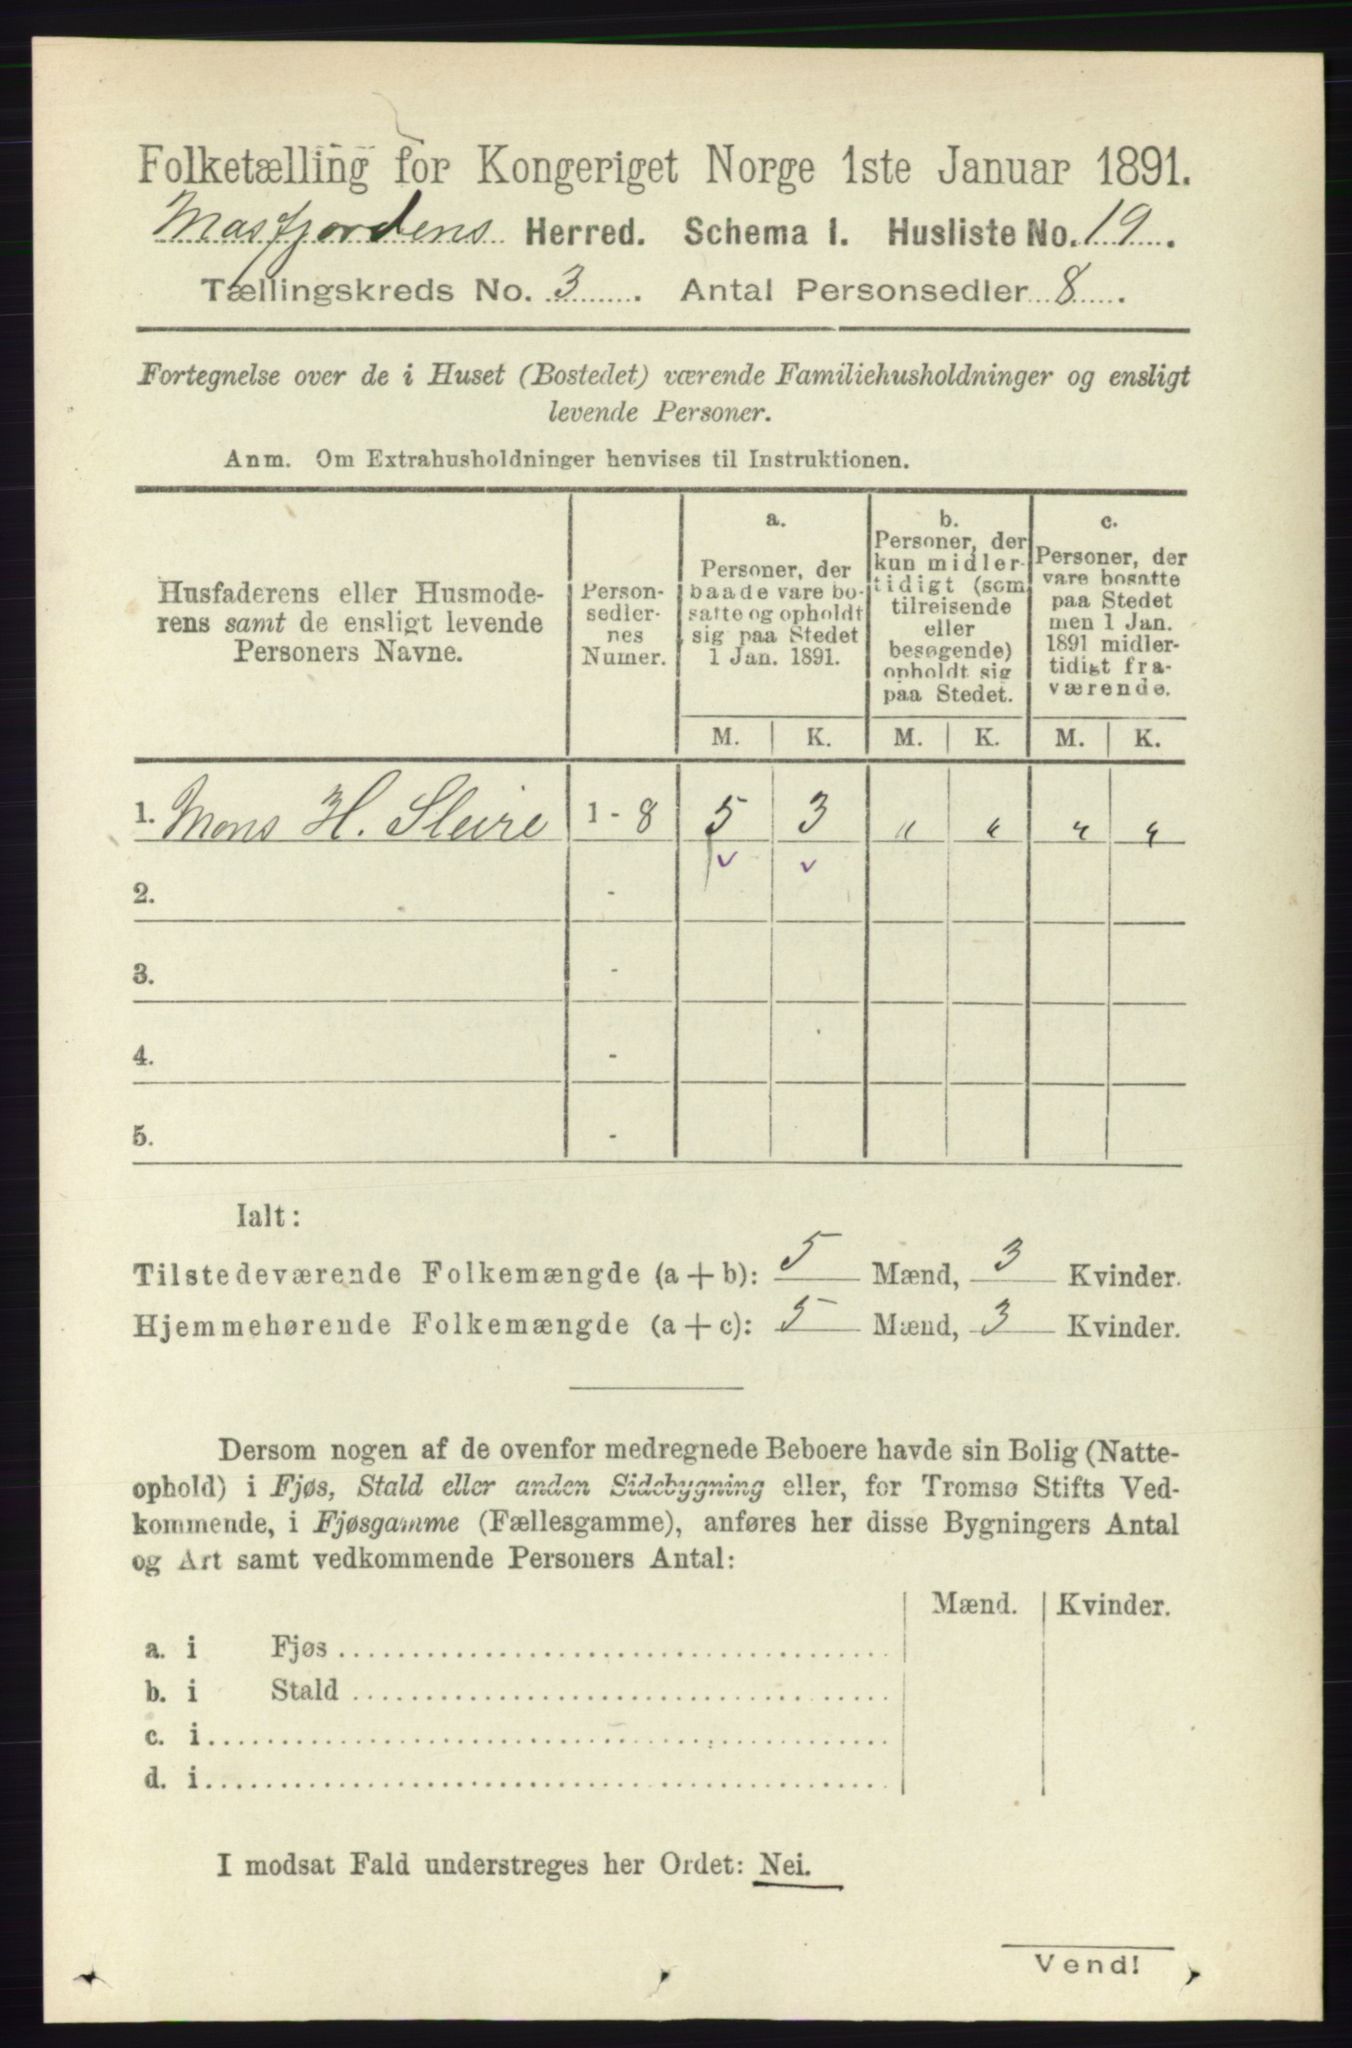 Folketælling for Kongeriget Norge 1ste Januar 1891.
Masfjordens Herred. Schema I. Husliste No. 19.
Tællingskreds No. 3. Antal Personsedler 8.
Fortegnelse over de i Huset (Bostedet) værende Familiehusholdninger og ensligt
levende Personer.
Anm. Om Extrahusholdninger henvises til Instruktionen.
Husfaderens eller Husmode-
rens samt de ensligt levende
Personers Navne.
Person-
sedler-
nes
Numer.
a.
Personer, der
baade vare bo-
satte og opholdt
sig paa Stedet
1 Jan. 1891.
b.
Personer, der
kun midler-
tidigt (som
tilreisende
eller
besøgende)
opholdt sig
paa Stedet.
c.
Personer, der
vare bosatte
paa Stedet
men 1 Jan.
1891 midler-
tidigt fra-
værende.
M. K. M. K. M. K.
1. Mons H. Sleire 1 - 8 5 3 " " " "
2. -
3. -
4. -
5. -
Ialt:
Tilstedeværende Folkemængde (a + b): 5 Mænd, 3 Kvinder.
Hjemmehørende Folkemængde (a + c): 5 Mænd, 3 Kvinder.
Dersom nogen af de ovenfor medregnede Beboere havde sin Bolig (Natte-
ophold) i Fjøs, Stald eller anden Sidebygning eller, for Tromsø Stifts Ved-
kommende, i Fjøsgamme (Fællesgamme), anføres her disse Bygningers Antal
og Art samt vedkommende Personers Antal:
Mænd. Kvinder.
a. i Fjøs
b. i Stald
c. i
d. i
I modsat Fald understreges her Ordet: Nei.
Vend!